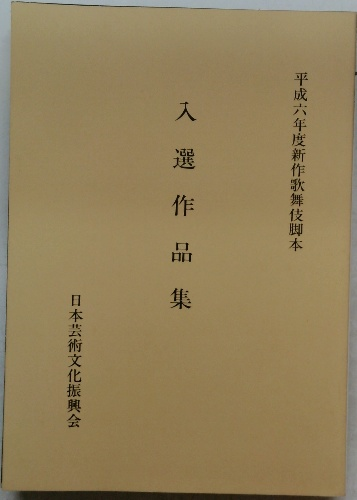 平成六年度新作歌舞伎脚本
入選作品集
日本芸術文化振興会